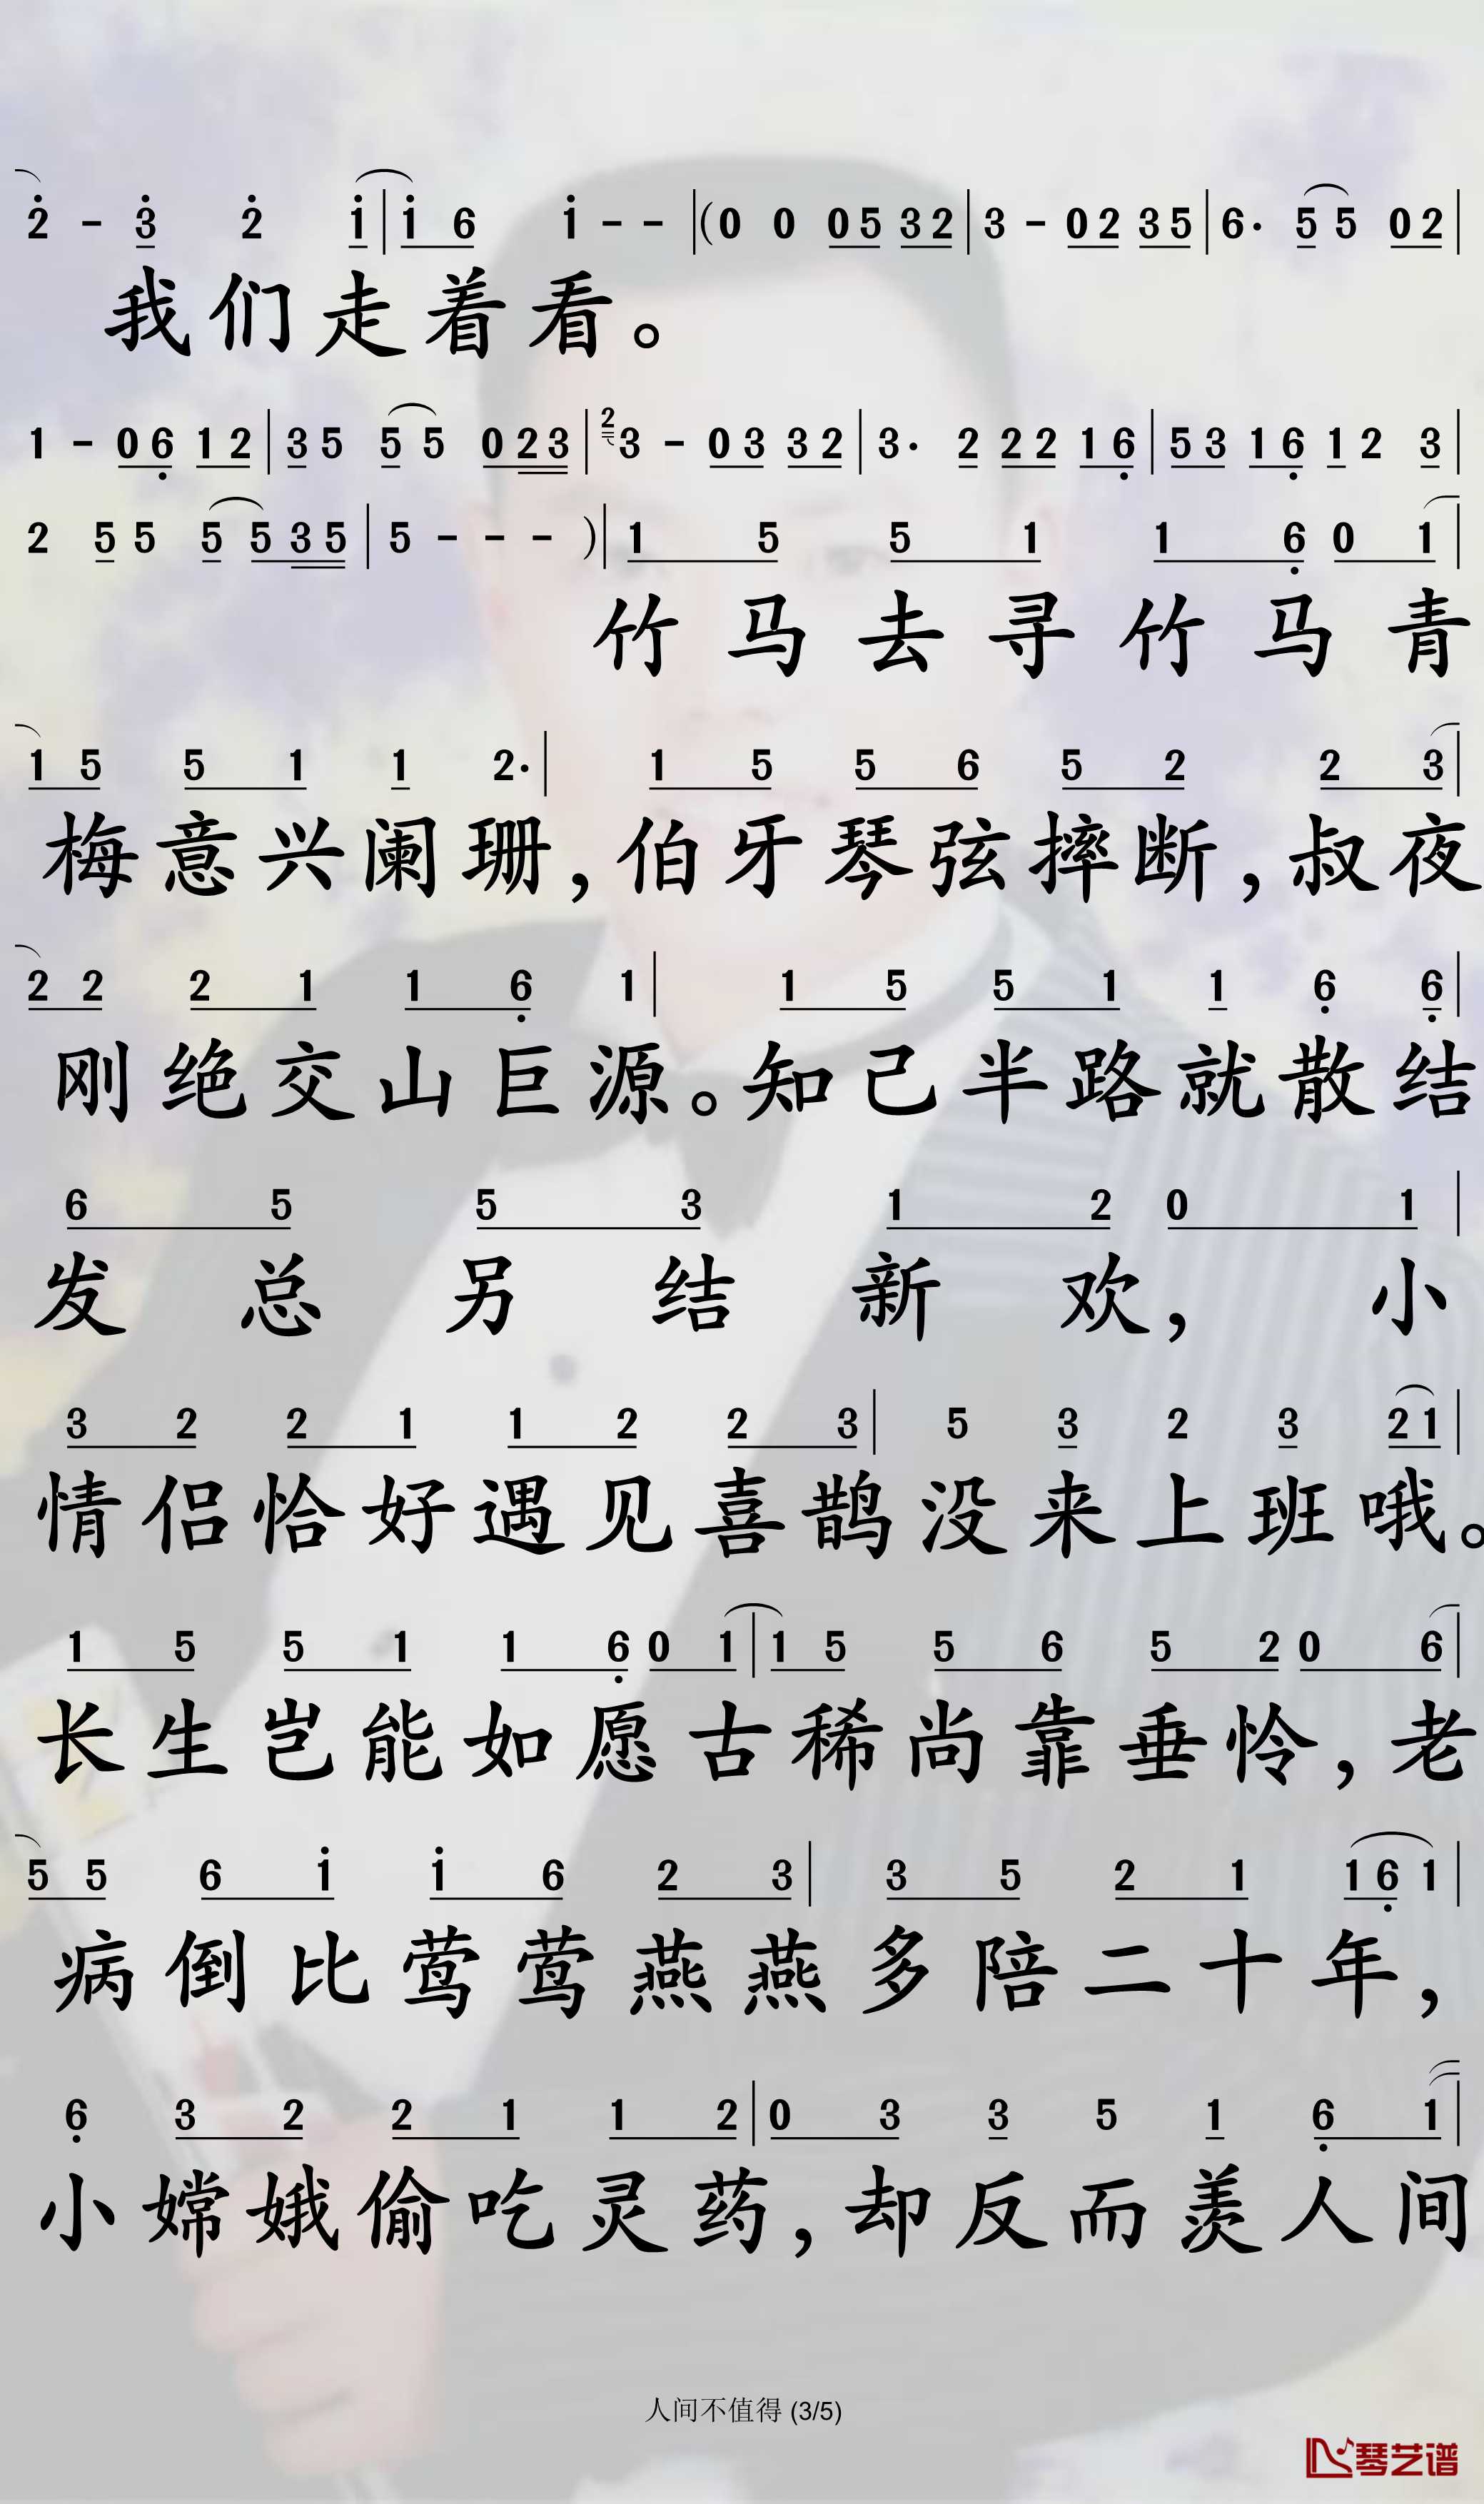 2̇ - 3̇ 2̇ 1̇ | 1̇ 6 1̇ - - | (0 0 0 5 3 2 | 3 - 0 2 3 5 | 6· 5 5 0 2 |
我们走着看。
1 - 0 6̣ 1 2 | 3 5 5 5 0 2 3 | 2 3 - 0 3 3 2 | 3· 2 2 2 1 6̣ | 5 3 1 6̣ 1 2 3 |
2 5 5 5 5 3 5 | 5 - - - ) | 1 5 5 1 1 6̣ 0 1 |
竹马去寻竹马青
1 5 5 1 1 2· | 1 5 5 6 5 2 2 3 |
梅意兴阑珊,伯牙琴弦摔断,叔夜
2 2 2 1 1 6̣ 1 | 1 5 5 1 1 6̣ 6̣ |
刚绝交山巨源。知己半路就散结
6 5 5 3 1 2 0 1 |
发总另结新欢,小
3 2 2 1 1 2 2 3 | 5 3 2 3 2 1 |
情侣恰好遇见喜鹊没来上班哦。
1 5 5 1 1 6̣ 0 1 | 1 5 5 6 5 2 0 6 |
长生岂能如愿古稀尚靠垂怜,老
5 5 6 1̇ 1̇ 6 2 3 | 3 5 2 1 1 6̣ 1 |
病倒比莺莺燕燕多陪二十年,
6̣ 3 2 2 1 1 2 | 0 3 3 5 1 6̣ 1 |
小嫦娥偷吃灵药,却反而羡人间
人间不值得 (3/5)
琴艺谱